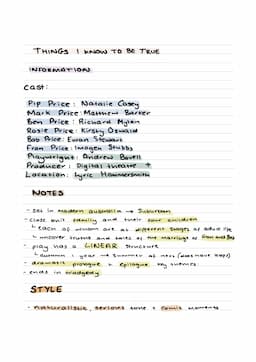 THINGS I KNOW TO BE TRUE
INFORMATION
Cast:
Pip Price: Natalie Casey
Mark Price: Matthew Barker
Ben Price: Richard Mylan
Rosie Price: Kirsty Oswald
Bob Price: Ewan Stewart
Fran Price: Imogen Stubbs
Playwright: Andrew Bovell
Producer: Digital theatre +
Location: Lyric Hammersmith
NOTES
- set in modern australia → Suburban
- close knit family and their four children
↳ each of whom are at different stages of
↳ uncover truths and of the marriage of
- play has a LINEAR structure
↳ autumn 1 year → summer of next
- dramatic prologue + epilogue key themes
- ends in tradgedy
STYLE
- naturalistic, serious tone + comic moments